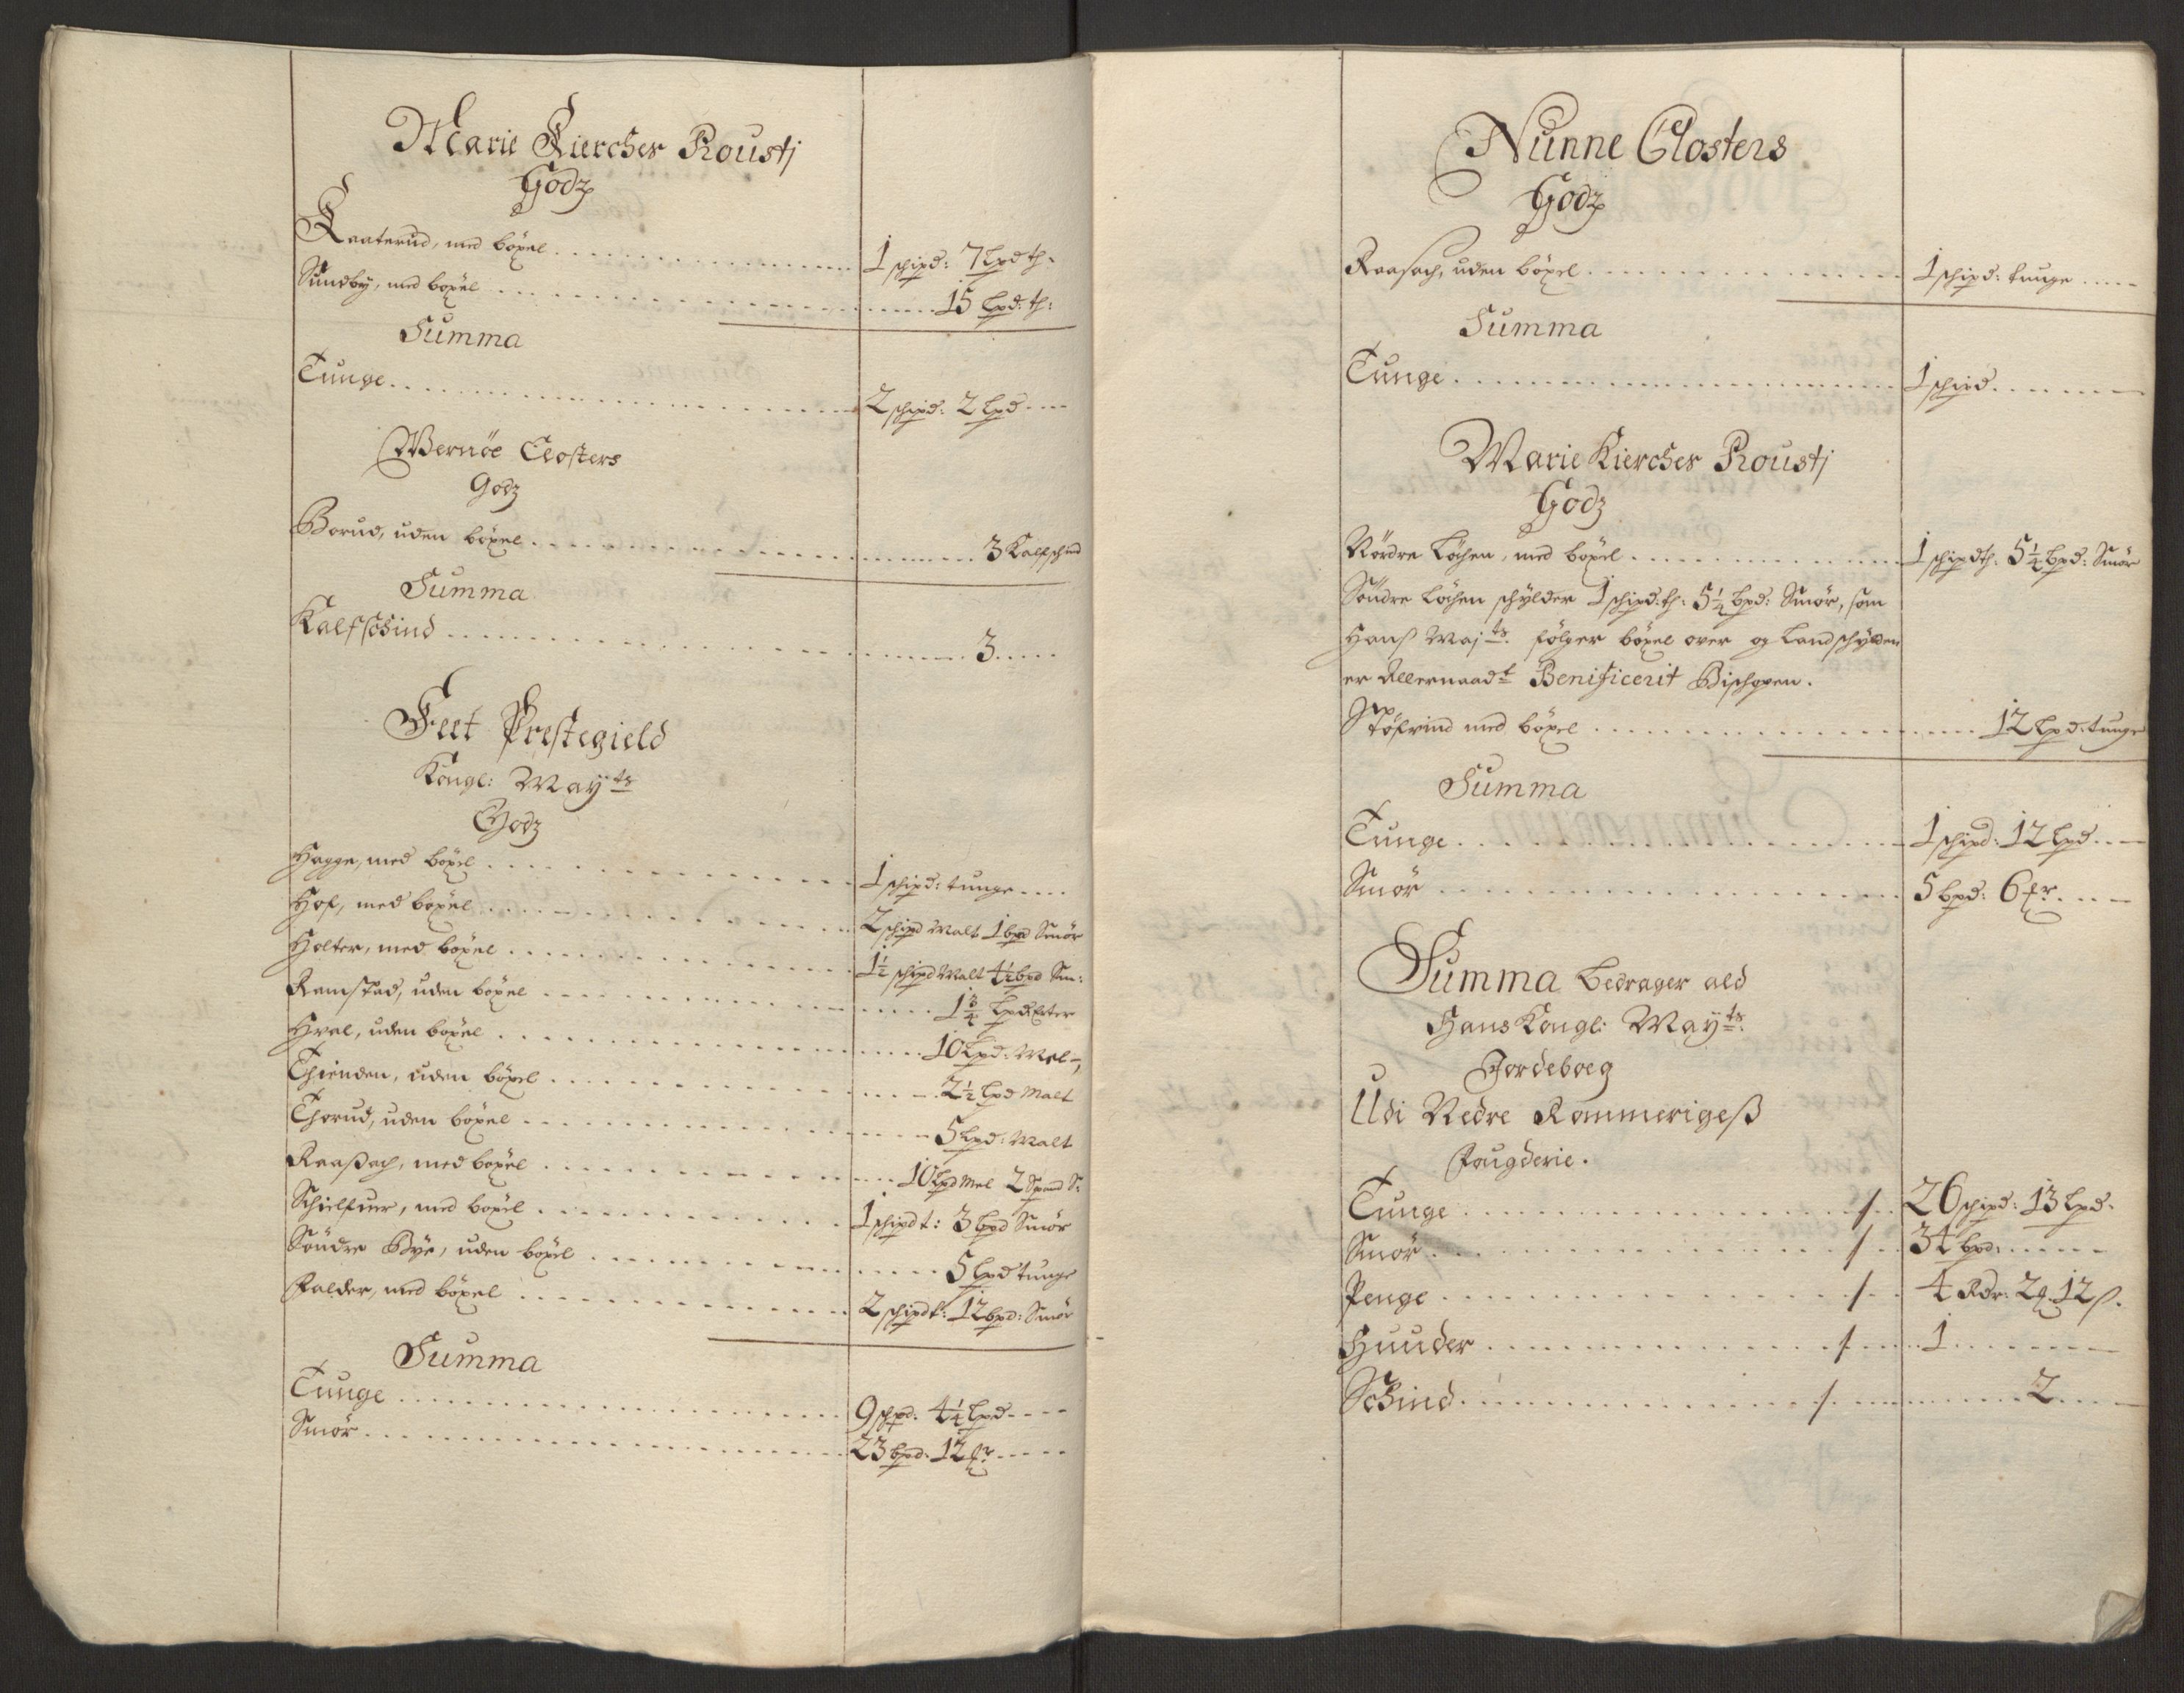 Marie Kierches Prousti
Godz
Kaaterud, med böxel . . . 1 schipd: 7 lpd th:
Sundby, med böxel . . . 15 lpd: th:
Summa
Tunge . . . 2 schipd: 2 lpd
Wernöe Closters
Godz
Borud, uden böxel . . . 3 Kalfschind
Summa
Kalfschind . . . 3
Feet Prestegield
Kongl: Mayts
Godz
Hagge, med böxel . . . 1 schipd: tunge
Hof, med böxel . . . 2 schipd Malt 1 bpd Smör
Holter, med böxel . . . 1½ schipd Malt 4½ bpd Sm:
Ramstad, uden böxel . . . 1¾ lpd Erter
Hval, uden böxel . . . 10 lpd: Mel
Thienden, uden böxel . . . 2½ lpd Malt
Thorud, uden böxel . . . 5 lpd: Malt
Raaßach, med böxel . . . 10 lpd Mel 2 Spand S:
Schielfuer, med böxel . . . 1 schipd t: 3 bpd Smör
Söndre Bye, uden böxel . . . 5 lpd tunge
Falder, med böxel . . . 2 schipd t: 12 bpd: Smör
Summa
Tunge . . . 9 schpd. 4¼ lpd
Smör . . . 23 bpd. 12 fr
Nunne Closters
Godz
Raasach, uden böxel . . . 1 schipd: tunge
Summa
Tunge . . . 1 schipd
Marie Kierches Prousti
Godz
Nördre Löchen, med böxel . . . 1 schipd th. 5¼ bpd: Smör
Söndre Löchen schylder 1 schipd: th: 5¼ bpd: Smör, som
Hans Majts. fölger böxel over og Landschylden
er Allernaadt Benificerit Bischopen.
Stöfrind med böxel . . . 12 lpd: tunge
Summa
Tunge . . . 1 schipd: 12 lpd
Smör . . . 5 bpd: 6 fr.
Summa bedrager ald
Hans Kongl: Mayts.
Jordeboeg
Udi Nedre Rommerigeß
Fougderie.
Tunge . . . / . . 26 schipd: 13 lpd.
Smör . . . / . . 34 bpd:
Penge . . . / . . 4 Rdr: 2 q. 12 ß.
Huuder . . . / . . 1
Schind . . . / . . 2